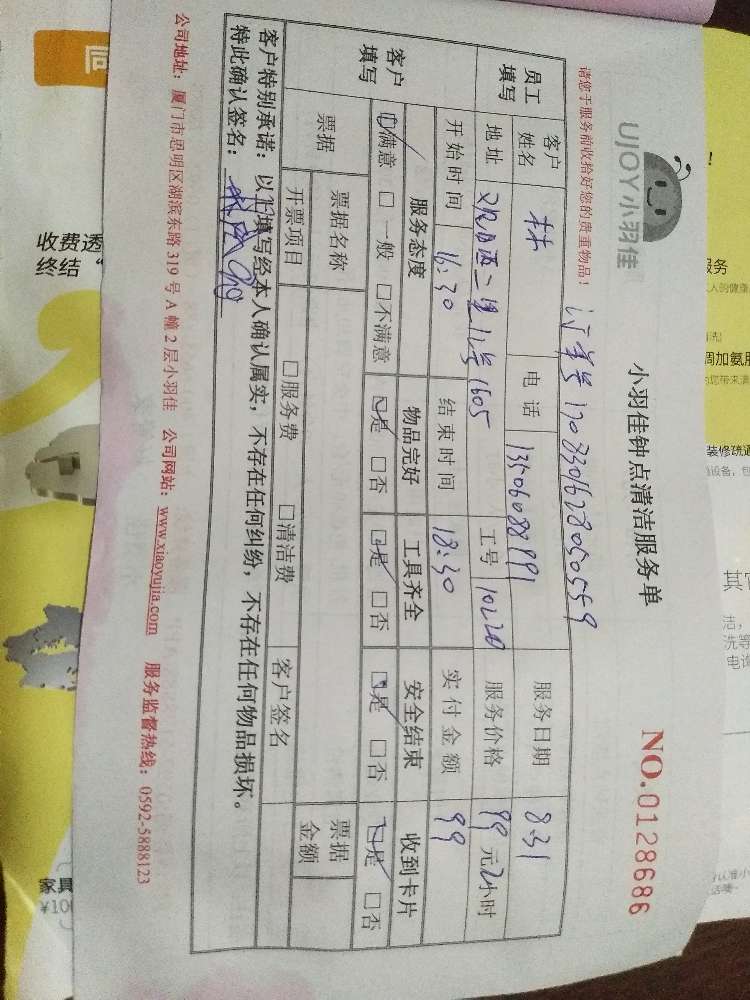 UJOY小羽佳
小羽佳钟点清洁服务单
NO.0128686
请您于服务前收拾好您的贵重物品！
订单号 1708330167280505559
员工填写
客户姓名 林 电话 13506088991 服务日期 8.31
地址 西二里11号1605 工号 10220 服务价格 99元2小时
开始时间 16:30 结束时间 18:30 实付金额 99
客户填写
服务态度 物品完好 工具齐全 安全结束 收到卡片
☑满意 □一般 □不满意 ☑是 □否 ☑是 □否 ☑是 □否 ☑是 □否
票据 票据名称 票据金额
开票项目 □服务费 □清洁费 客户签名
客户特别承诺：以上填写经本人确认属实，不存在任何纠纷，不存在任何物品损坏。
特此确认签名：
公司地址：厦门市思明区湖滨东路 319 号 A 幢 2 层小羽佳 公司网站：www.xiaoyujia.com 服务监督热线：0592-5888123
同
收费透
终结“
家具
¥10
服务
周加氨
装修疏通
其它